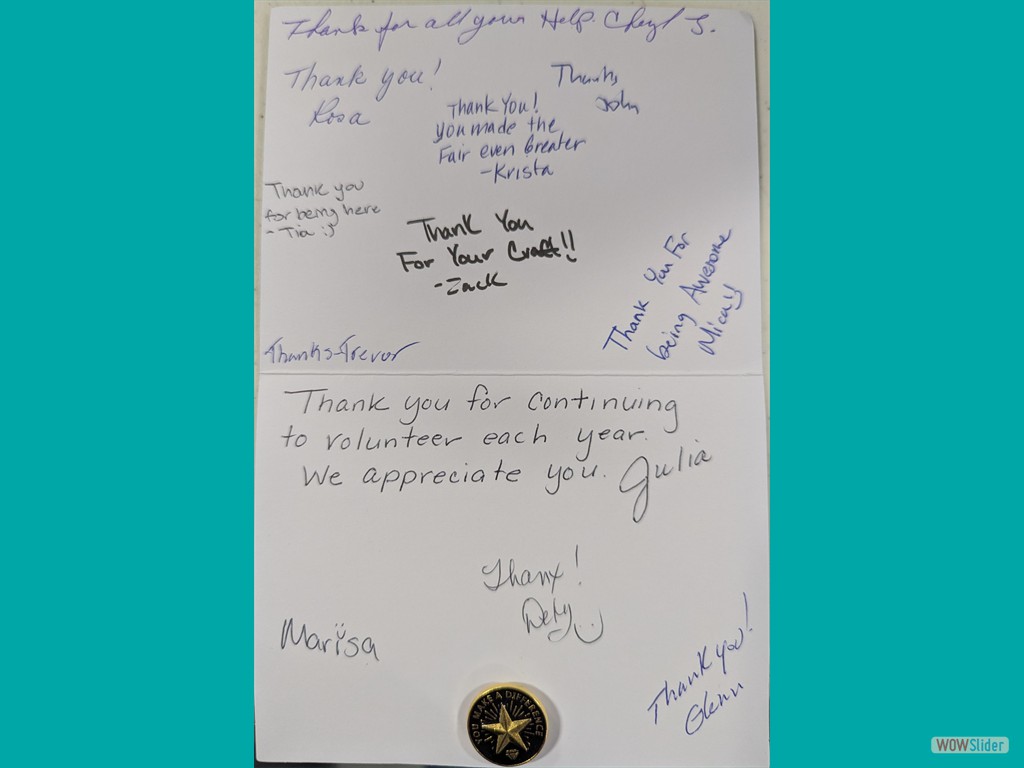 Thank for all your Help. Cheryl S.
Thank you!
Rosa
Thanks
John
Thank You!
you made the
Fair even Greater
-Krista
Thank you
for being here
- Tia :)
Thank You
For Your Craft!!
-Zack
Thank You For
being Awesome
Thanks-Trevor
Thank you for continuing
to volunteer each year.
We appreciate you. Julia
Thanx!
Marisa
Thank you!
Glenn
YOU MAKE A DIFFERENCE
WOWSlider